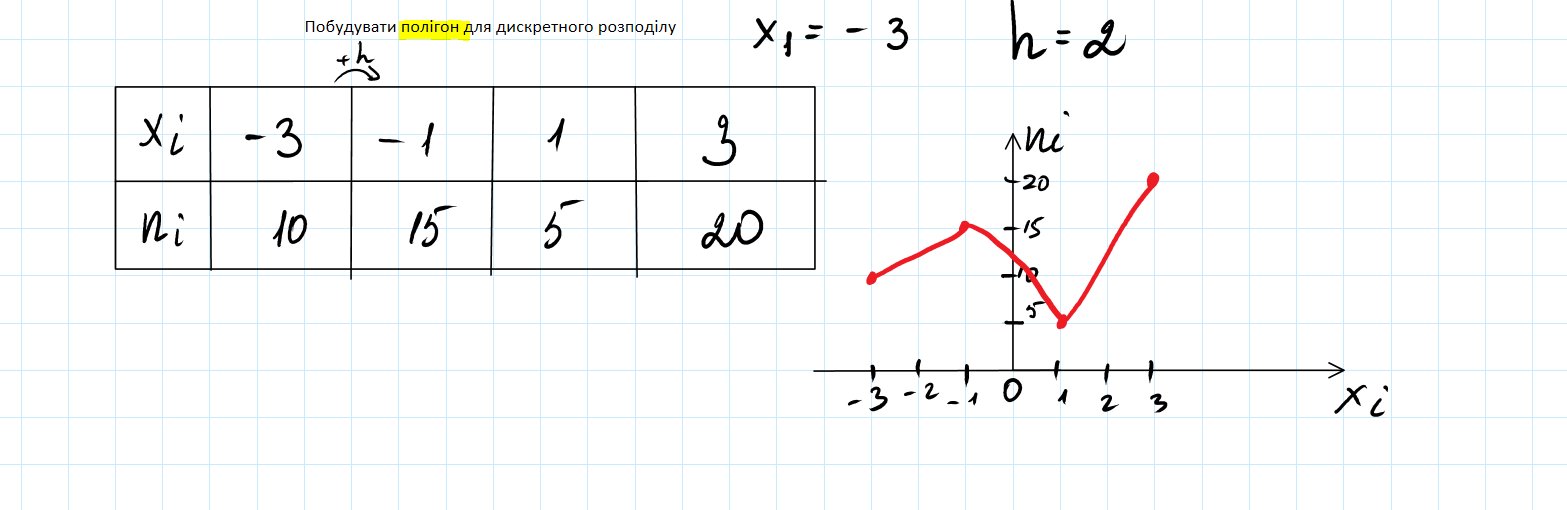 Побудувати полігон для дискретного розподілу
x₁ = - 3
h = 2
+h
xi -3 -1 1 3
ni 10 15 5 20
ni
20
15
10
5
-3 -2 -1 0 1 2 3
xi